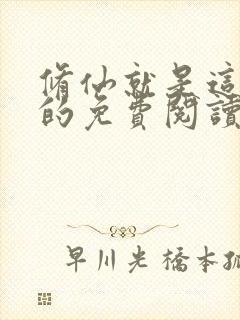 脩仙就是這
的免費閱讀
早川光橋本孤